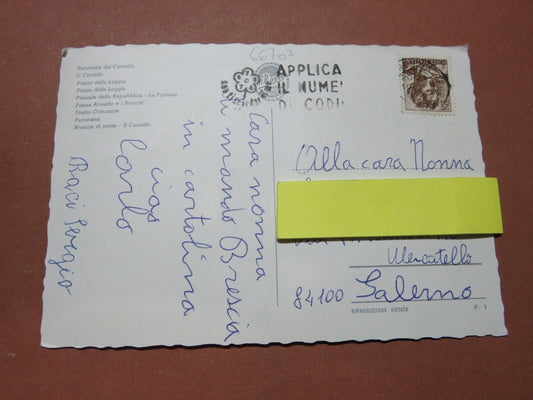 6670
Panorama dal Castello
Il Castello
Piazza della Loggia
Piazza della Loggia
Piazzale della Repubblica - La Fontana
Piazza Arnaldo e i Ronchi
Stadio Comunale
Panorama
Brescia di notte - Il Castello
APPLICA
IL NUME'
DI CODI
Cara nonna
ti mando Brescia
in cartolina
ciao
Carlo
Baci Sergio
Alla cara Nonna
Mercatello
84100 Salerno
RIPRODUZIONE VIETATA
F. 1